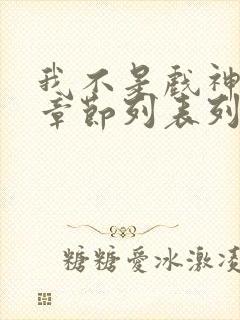 我不是戏神
章节列表列
糖糖爱冰激凌